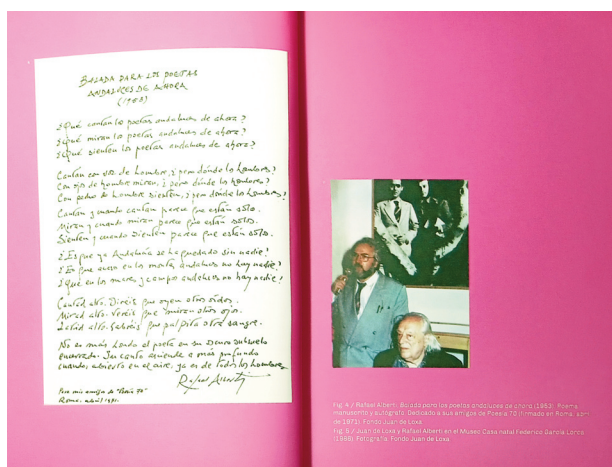 BALADA PARA LOS POETAS
ANDALUCES DE AHORA
(1953)
¿Qué cantan los poetas andaluces de ahora?
¿Qué miran los poetas andaluces de ahora?
¿Qué sienten los poetas andaluces de ahora?
Cantan con voz de hombre, ¿pero dónde los hombres?
Con ojos de hombre miran, ¿pero dónde los hombres?
Con pecho de hombre sienten, ¿pero dónde los hombres?
Cantan, y cuando cantan parece que están solos.
Miran, y cuando miran parece que están solos.
Sienten, y cuando sienten parece que están solos.
¿Es que ya Andalucía se ha quedado sin nadie?
¿Es que acaso en los montes andaluces no hay nadie?
¿Que en los mares y campos andaluces no hay nadie?
Cantad alto. Oireis que oyen otros oidos.
Mirad alto. Vereis que miran otros ojos.
Latid alto. Sabreis que palpita otra sangre.
No es más hondo el poeta en su oscuro subsuelo
encerrado. Su canto asciende a más profundo
cuando, abierto en el aire, ya es de todos los hombres.
Rafael Alberti
Para mis amigos de "Poesía 70"
Roma. abril 1971.
Fig. 4 / Rafael Alberti: Balada para los poetas andaluces de ahora (1953). Poema
manuscrito y autógrafo. Dedicado a sus amigos de Poesía 70 (firmado en Roma, abril
de 1971). Fondo Juan de Loxa
Fig. 5 / Juan de Loxa y Rafael Alberti en el Museo Casa natal Federico García Lorca
(1986). Fotografía: Fondo Juan de Loxa